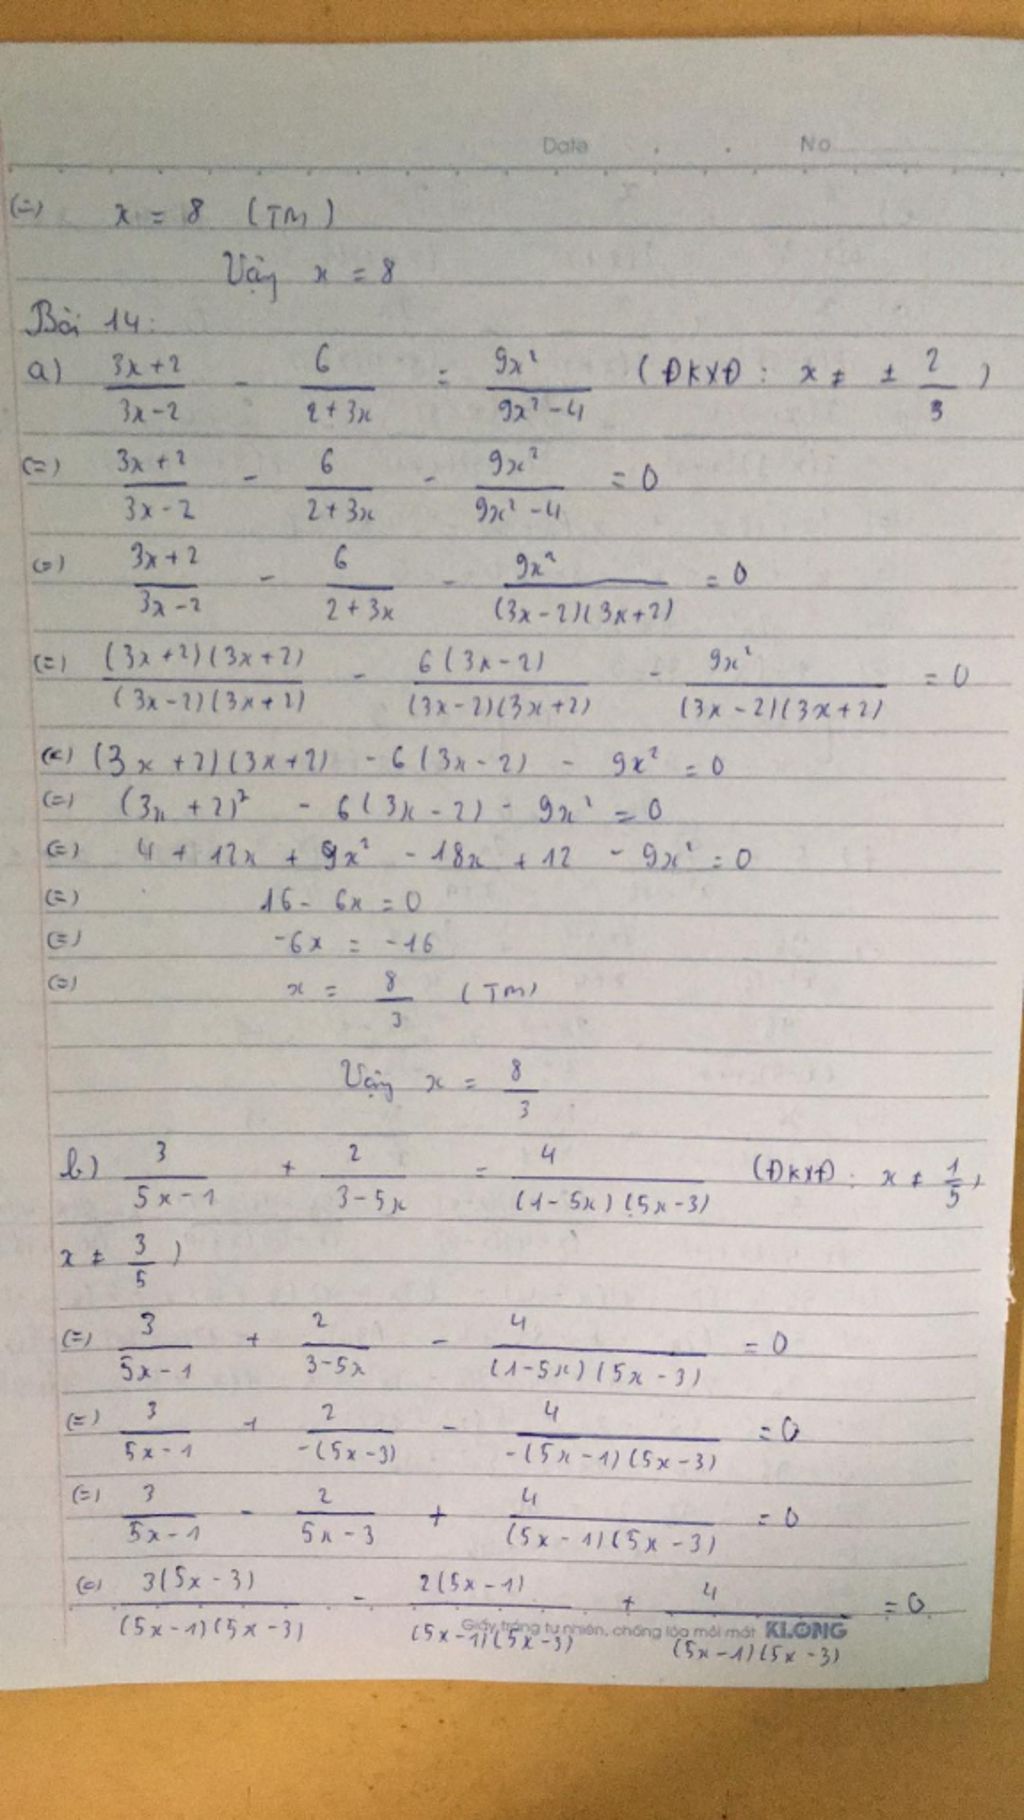 Date . . No
(=) x = 8 (TM)
Vậy x = 8
Bài 14:
a) (3x+2)/(3x-2) - 6/(2+3x) = 9x²/(9x²-4) (ĐKXĐ: x ≠ ± 2/3)
(=) (3x+2)/(3x-2) - 6/(2+3x) - 9x²/(9x²-4) = 0
(=) (3x+2)/(3x-2) - 6/(2+3x) - 9x²/((3x-2)(3x+2)) = 0
(=) (3x+2)(3x+2)/((3x-2)(3x+2)) - 6(3x-2)/((3x-2)(3x+2)) - 9x²/((3x-2)(3x+2)) = 0
(=) (3x+2)(3x+2) - 6(3x-2) - 9x² = 0
(=) (3x+2)² - 6(3x-2) - 9x² = 0
(=) 4 + 12x + 9x² - 18x + 12 - 9x² = 0
(=) 16 - 6x = 0
(=) -6x = -16
(=) x = 8/3 (TM)
Vậy x = 8/3
b) 3/(5x-1) + 2/(3-5x) = 4/((1-5x)(5x-3)) (ĐKXĐ: x ≠ 1/5,
x ≠ 3/5)
(=) 3/(5x-1) + 2/(3-5x) - 4/((1-5x)(5x-3)) = 0
(=) 3/(5x-1) + 2/(-(5x-3)) - 4/(-(5x-1)(5x-3)) = 0
(=) 3/(5x-1) - 2/(5x-3) + 4/((5x-1)(5x-3)) = 0
(=) 3(5x-3)/((5x-1)(5x-3)) - 2(5x-1)/((5x-1)(5x-3)) + 4/((5x-1)(5x-3)) = 0
Giấy trắng tự nhiên, chống lóa mỏi mắt KLONG